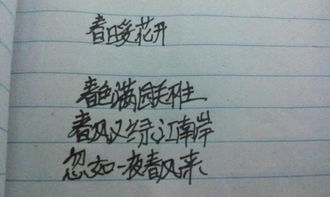 春日暖花开
春色满园关不住
春风又绿江南岸
忽如一夜春风来